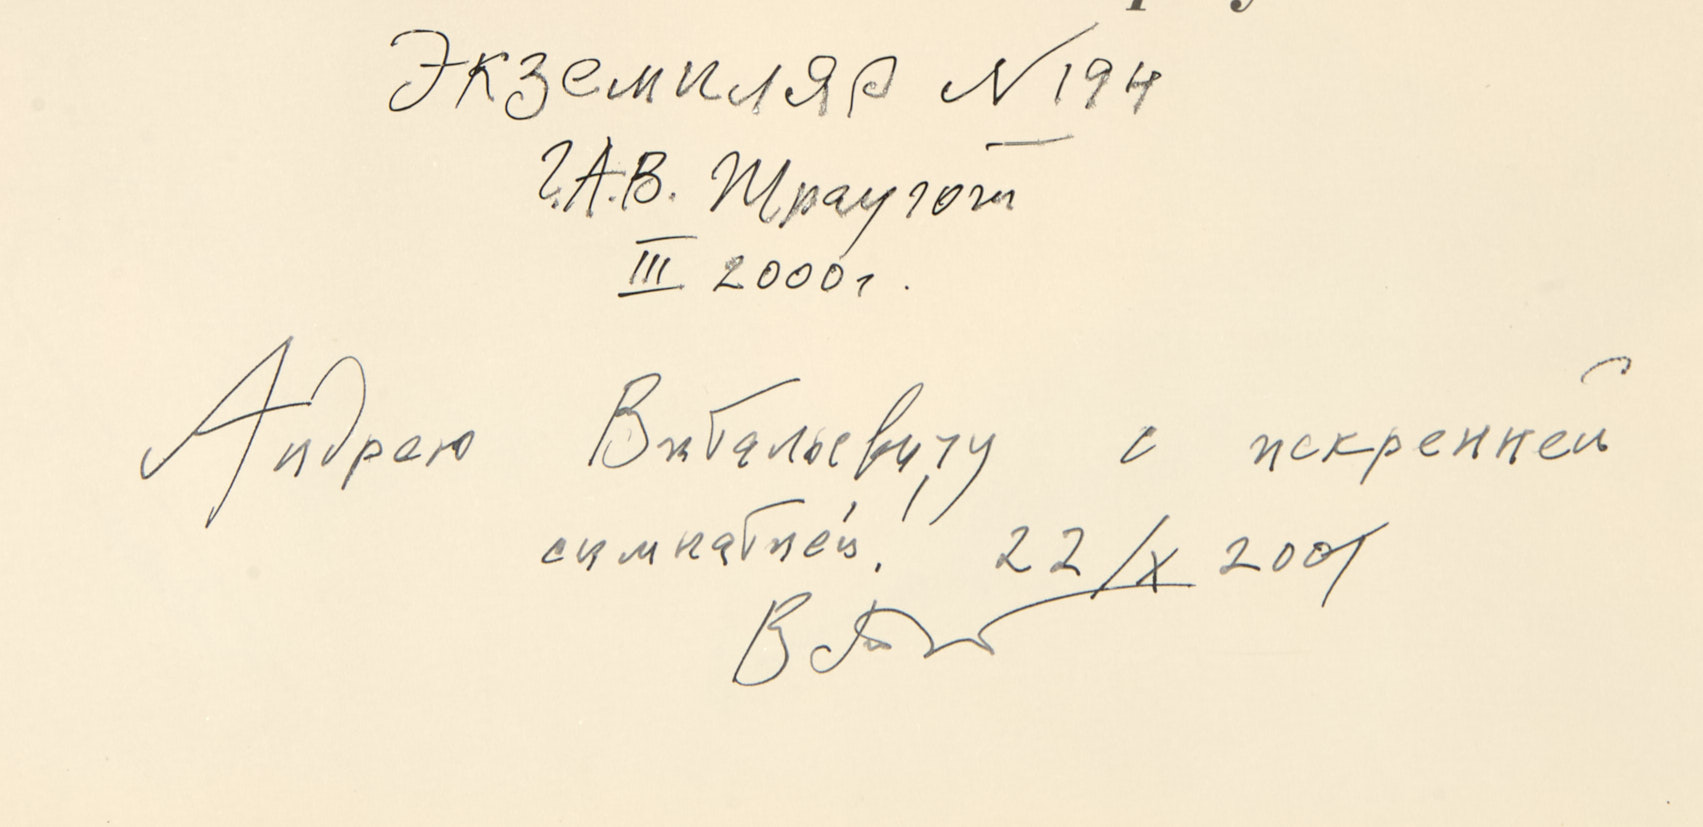 Экземпляр № 194
Г.А.В. Траугот
III 2000г.
Андрею Витальевичу с искренней
симпатией! 22/X 2001